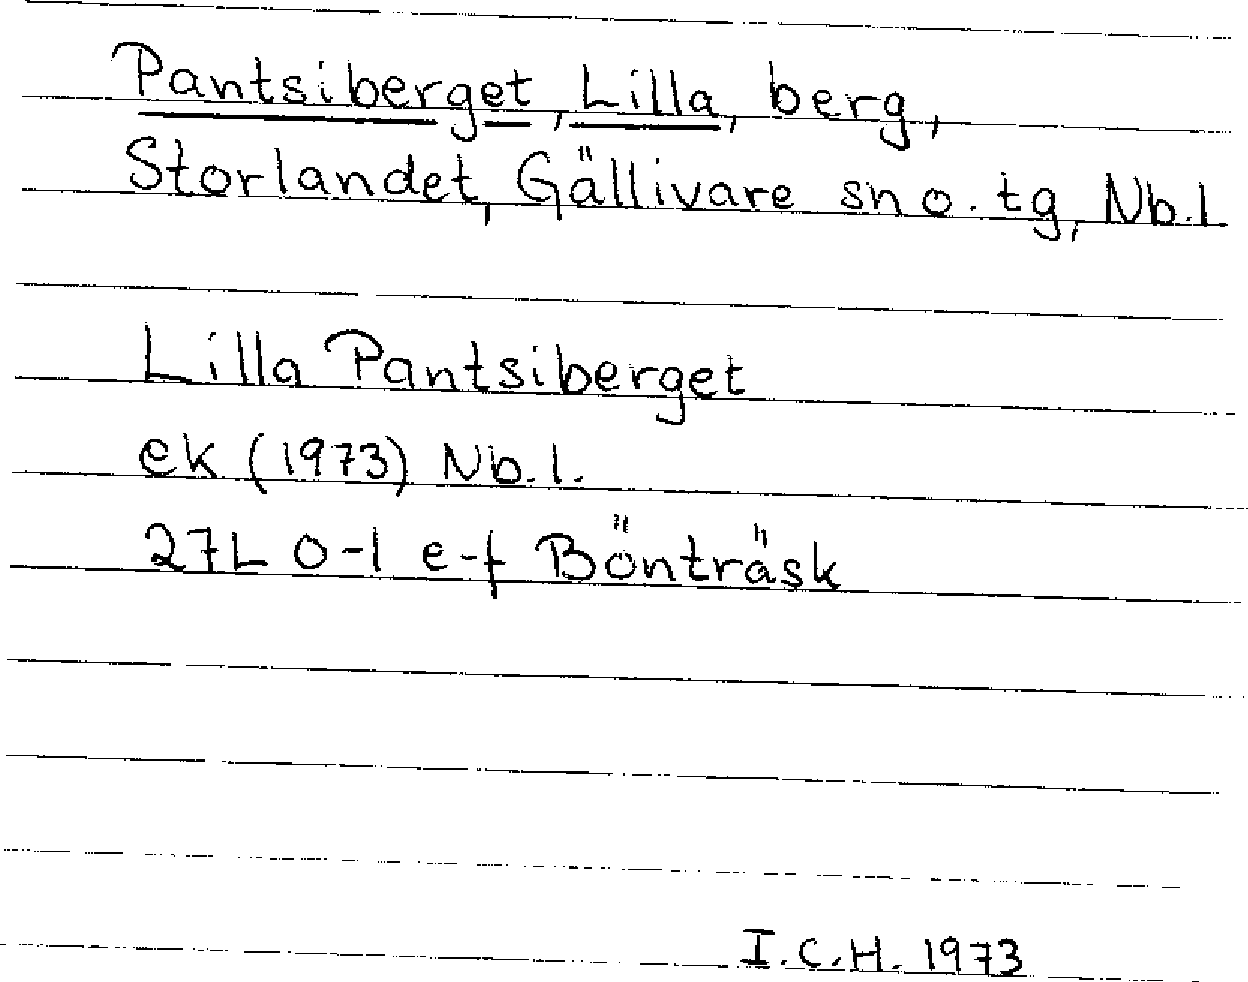 Pantsiberget, Lilla, berg,
Storlandet, Gällivare sn o. tg, Nb.l
Lilla Pantsiberget
ek (1973) Nb.l.
27L 0-1 e-f Bönträsk
I.C.H. 1973